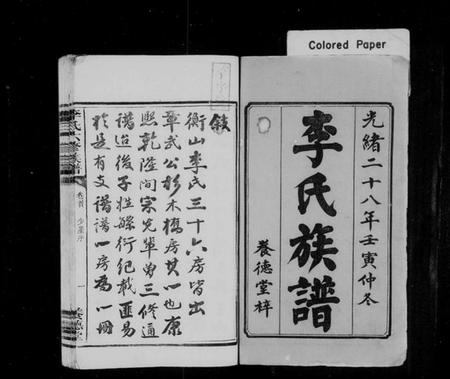 Colored Paper
光緒二十八年壬寅仲冬
李氏族譜
養德堂梓
敘
衡山李氏三十六房皆出
章武公杉木橋房其一也康
熙乾隆間宋先輩曾三修通
譜迨後子姓繇衍紀載匪易
於是有支譜譜一房為一冊